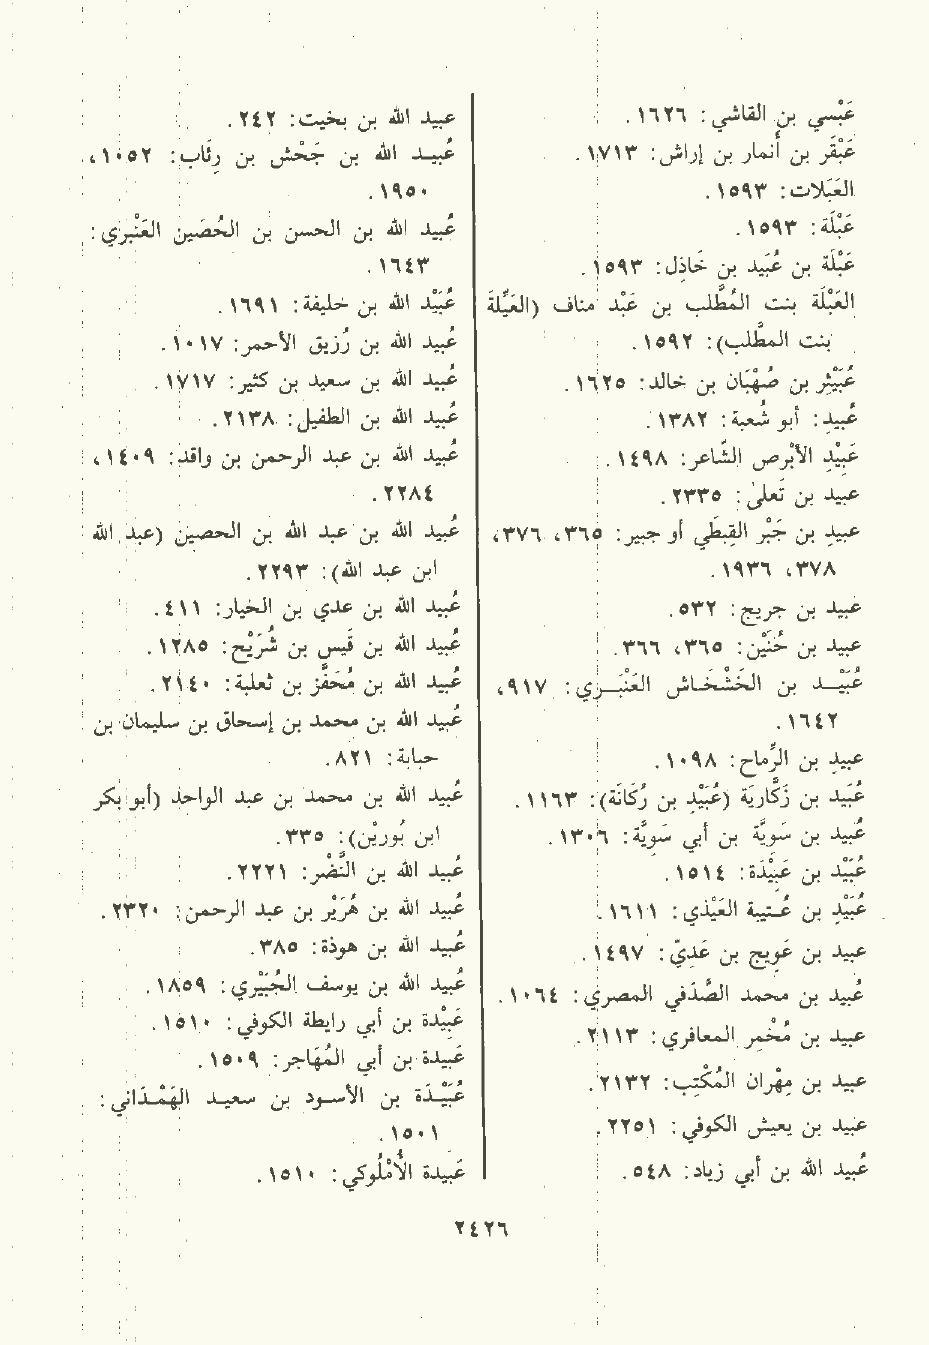 عَبْسي بن القاشي: ١٦٢٦.
عَبْقَر بن أنمار بن إراش: ١٧١٣.
العَبَلات: ١٥٩٣.
عَبْلَة: ١٥٩٣.
عَبْلَة بن عُبَيد بن خَاذِل: ١٥٩٣.
العَبْلَة بنت المُطَّلب بن عَبْد مناف (العَيِّلَة
بنت المطَّلب): ١٥٩٢.
عُبَيْثِر بن صُهْبَان بن خالد: ١٦٢٥.
عُبيدِ: أبو شُعبة: ١٣٨٢.
عَبِيْدِ الأبْرص الشَّاعر: ١٤٩٨.
عبيد بن تَعلىٰ: ٢٣٣٥.
عبيدِ بن جَبْر القِبطَي أو جبير: ٣٦٥، ٣٧٦،
٣٧٨، ١٩٣٦.
عبيد بن جريج: ٥٣٢.
عبيد بن حُنَيْن: ٣٦٥، ٣٦٦.
عُبَيْـــد بن الخَشْخَـاش العَنْبَــري: ٩١٧،
١٦٤٢.
عبيدِ بن الرِّماح: ١٠٩٨.
عُبَيد بن زَكَّاريَة (عُبَيْدِ بن رُكَانَة): ١١٦٣.
عُبيد بن سَوِيَّة بن أبي سَوِيَّة: ١٣٠٦.
عُبَيْد بن عَبِيْدَة: ١٥١٤.
عُبَيْدِ بن عُـتيبة العَيْذي: ١٦١١.
عبيد بن عَوِيج بن عَدِيّ: ١٤٩٧.
عُبيد بن محمد الصَّدَفي المصري: ١٠٦٤.
عبيد بن مُخْمِر المعافري: ٢١١٣.
عبيد بن مِهْران المُكْتِب: ٢١٣٢.
عبيد بن يعيش الكوفي: ٢٢٥١.
عُبيد الله بن أبي زياد: ٥٤٨.
عبيد الله بن بخيت: ٢٤٢.
عُبيـد الله بن جَحْش بن رِئَاب: ١٠٥٢،
١٩٥٠.
عُبيد الله بن الحسن بن الحُصَين العَنْبري:
١٦٤٣.
عُبَيْد الله بن خليفة: ١٦٩١.
عُبيد الله بن رُزيق الأحمر: ١٠١٧.
عُبيد الله بن سعيد بن كثير: ١٧١٧.
عُبيد الله بن الطفيل: ٢١٣٨.
عُبيد الله بن عبد الرحمن بن واقد: ١٤٠٩،
٢٢٨٤.
عُبيد الله بن عبد الله بن الحصين (عبد الله
ابن عبد الله): ٢٢٩٣.
عُبيد الله بن عدي بن الخيار: ٤١١.
عُبيد الله بن قَيس بن شُرَيْح: ١٢٨٥.
عُبيد الله بن مُحَفَّز بن ثعلبة: ٢١٤٠.
عُبيد الله بن محمد بن إسحاق بن سليمان بن
حبابة: ٨٢١.
عُبيد الله بن محمد بن عبد الواحد (أبو بكر
ابن بُوريْن): ٣٣٥.
عُبيد الله بن النَّضْر: ٢٢٢١.
عُبيد الله بن هُرَيْر بن عبد الرحمن: ٢٣٢٠.
عُبيد الله بن هوذة: ٣٨٥.
عُبيد الله بن يوسف الجُبَيْري: ١٨٥٩.
عَبِيْدة بن أبي رايطة الكوفي: ١٥١٠.
عَبيدة بن أبي المُهَاجر: ١٥٠٩.
عُبَيْـدَة بن الأسـود بن سعيـد الهَمْـدَاني:
١٥٠١.
عَبيدة الأُمْلُوكي: ١٥١٠.
٢٤٢٦